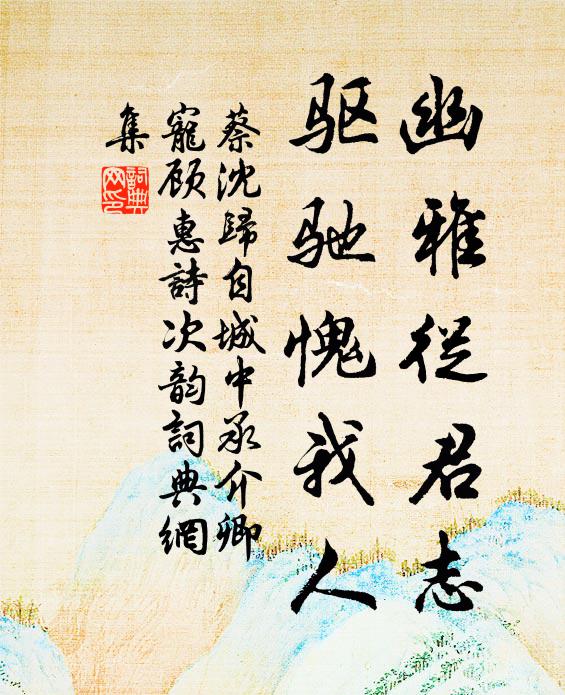 幽雅從君志
驱驰愧我人
蔡沈歸自城中承介卿
寵顾惠詩次韵詞典網
集
詞典
网印